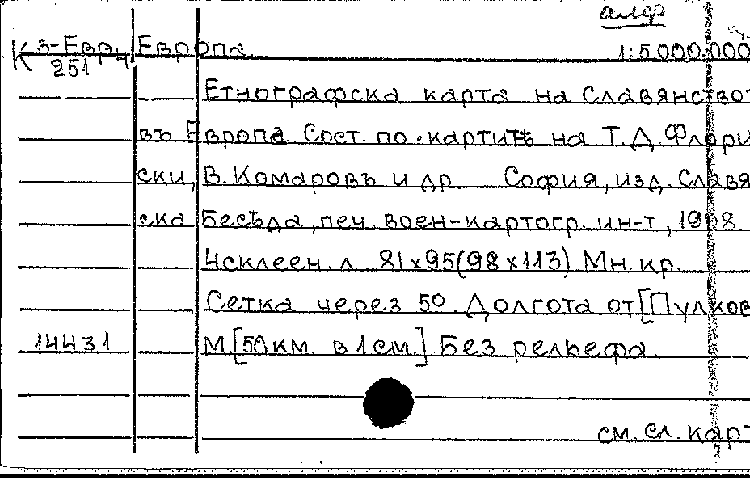 алф
К 3-Евр. Европа. 1:5.000.000
251
Етнографска карта на Славянство
въ Европа. Сост. по картитѣ на Т.Д. Флори
ски, В. Комаровъ и др. София, изд. Славя
ска Бесѣда, печ. воен-картогр. ин-т, 19
4склеен. л. 81х95(98х113) Мн. кр.
Сетка через 5°. Долгота от [Пулков
14431 М [50км. в 1см.] Без рельефа.
см. сл. карт